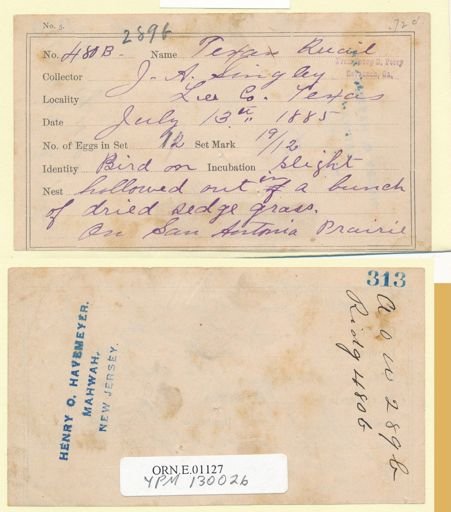 No. 5.
289b
No. 480B. Name Texan Quail
Troup D. Perry
Savannah, Ga.
Collector J. A. Singley
Locality Lee Co. Texas
Date July 13th 1885
No. of Eggs in Set 12 Set Mark 19/12
Identity Bird on Incubation Slight
Nest hollowed out in a bunch
of dried sedge grass.
On San Antonia Prairie
313
HENRY O. HAVEMEYER.
MAHWAH,
NEW JERSEY.
A O U 289b
Ridg 480b
ORN.E.01127
YPM 130026